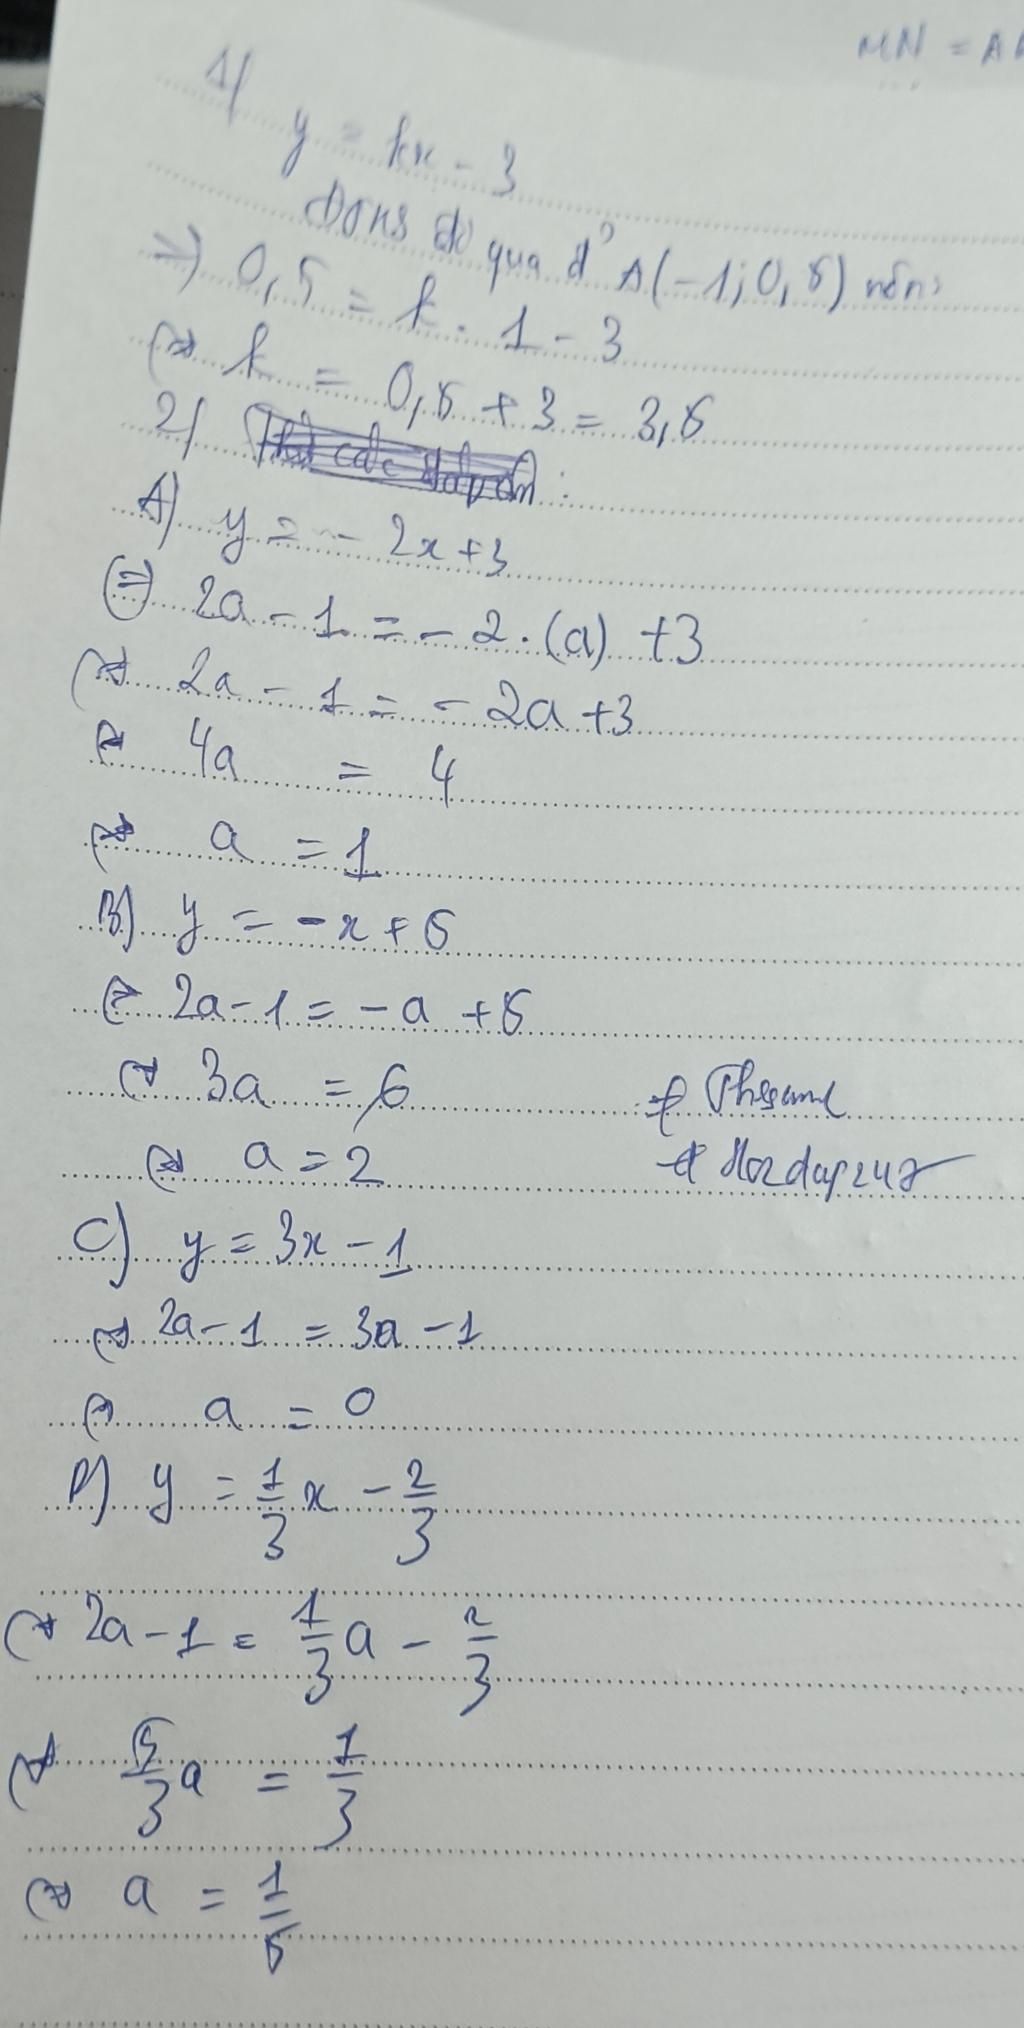 MN = A
1/
y = kx - 3
qua đ' A(-1; 0,5) nên:
=> 0,5 = k . 1 - 3
<=> k = 0,5 + 3 = 3,5
2/
A) y = - 2x + 3
<=> 2a - 1 = - 2 . (a) + 3
<=> 2a - 1 = - 2a + 3
<=> 4a = 4
<=> a = 1
B) y = - x + 5
<=> 2a - 1 = - a + 5
<=> 3a = 6
<=> a = 2
C) y = 3x - 1
<=> 2a - 1 = 3a - 1
<=> a = 0
D) y = 1/3 x - 2/3
<=> 2a - 1 = 1/3 a - 2/3
<=> 5/3 a = 1/3
<=> a = 1/5